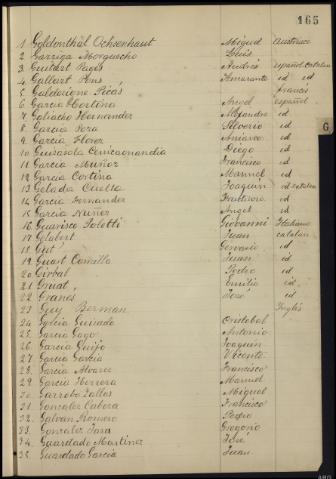 165
1 Goldenthäl Ochsenhaut Miguel Austriaco
2 Garriga Morguecho Luis
3 Guitart Pages Andrés español catalan
4 Gallart Pns Amaranto id id
5 Galdorione Picás francis
6 Garcia Cortina Angel español
7 Galiacho Hernandez Alejandro id
8 Garcia Vera Silverio id
9 Garcia Florez Aniano id
10 Cenicaonandia Diego id
11 Garcia Muñoz Francisco id
12 Garcia Cortina Manuel id
13 Gelada Cuella Joaquin id catalan
14 Garcia Fernandez id
15 Garcia Nuñez Angel id
16 Guarisco Polotti Giovanni Italiano
17 Gelabert Juan catalan
18 Gut Gervasio id
19 Guart Camilla Juan id
20 Girbal Pedro id
21 Gruat Emilia id
22 Granes José id
23 Guy Berman Inglés
24 Guisado Cristobal
25 Garcia Gago Antonio
26 Garcia Guijo Joaquin
27 Garcia Garcia Vicente
28 Garcia Alvarez Francisco
29 Garcia Herrera Manuel
30 Garrobo Tallos Miguel
31 Gonzalez Cabeza Francisco
32 Galvan Romero Pedro
33 Gonzalez Gregorio
34 Guardado Martinez José
35 Guardado Garcia Juan
G